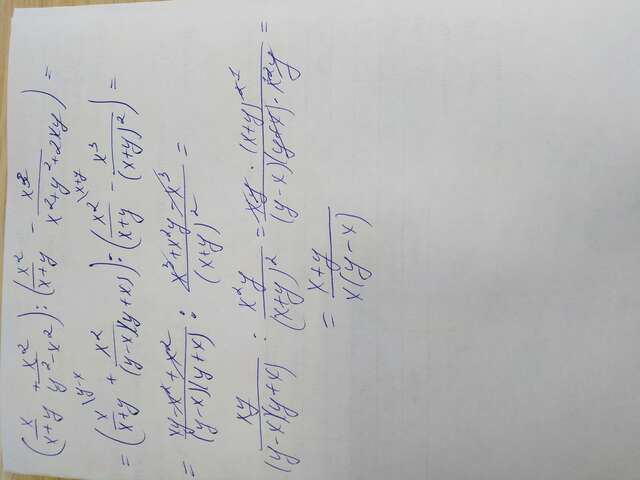 (x/(x+y) + x²/(y²-x²)) : (x²/(x+y) - x³/(x²+y²+2xy)) =
= (x/(x+y) \y-x + x²/((y-x)(y+x))) : (x²/(x+y) \x+y - x³/(x+y)²) =
= (xy-x²+x²)/((y-x)(y+x)) : (x³+x²y-x³)/(x+y)² =
xy/((y-x)(y+x)) : x²y/(x+y)² = (xy · (x+y)²)/((y-x)(y+x) · x²y) =
= (x+y)/(x(y-x))